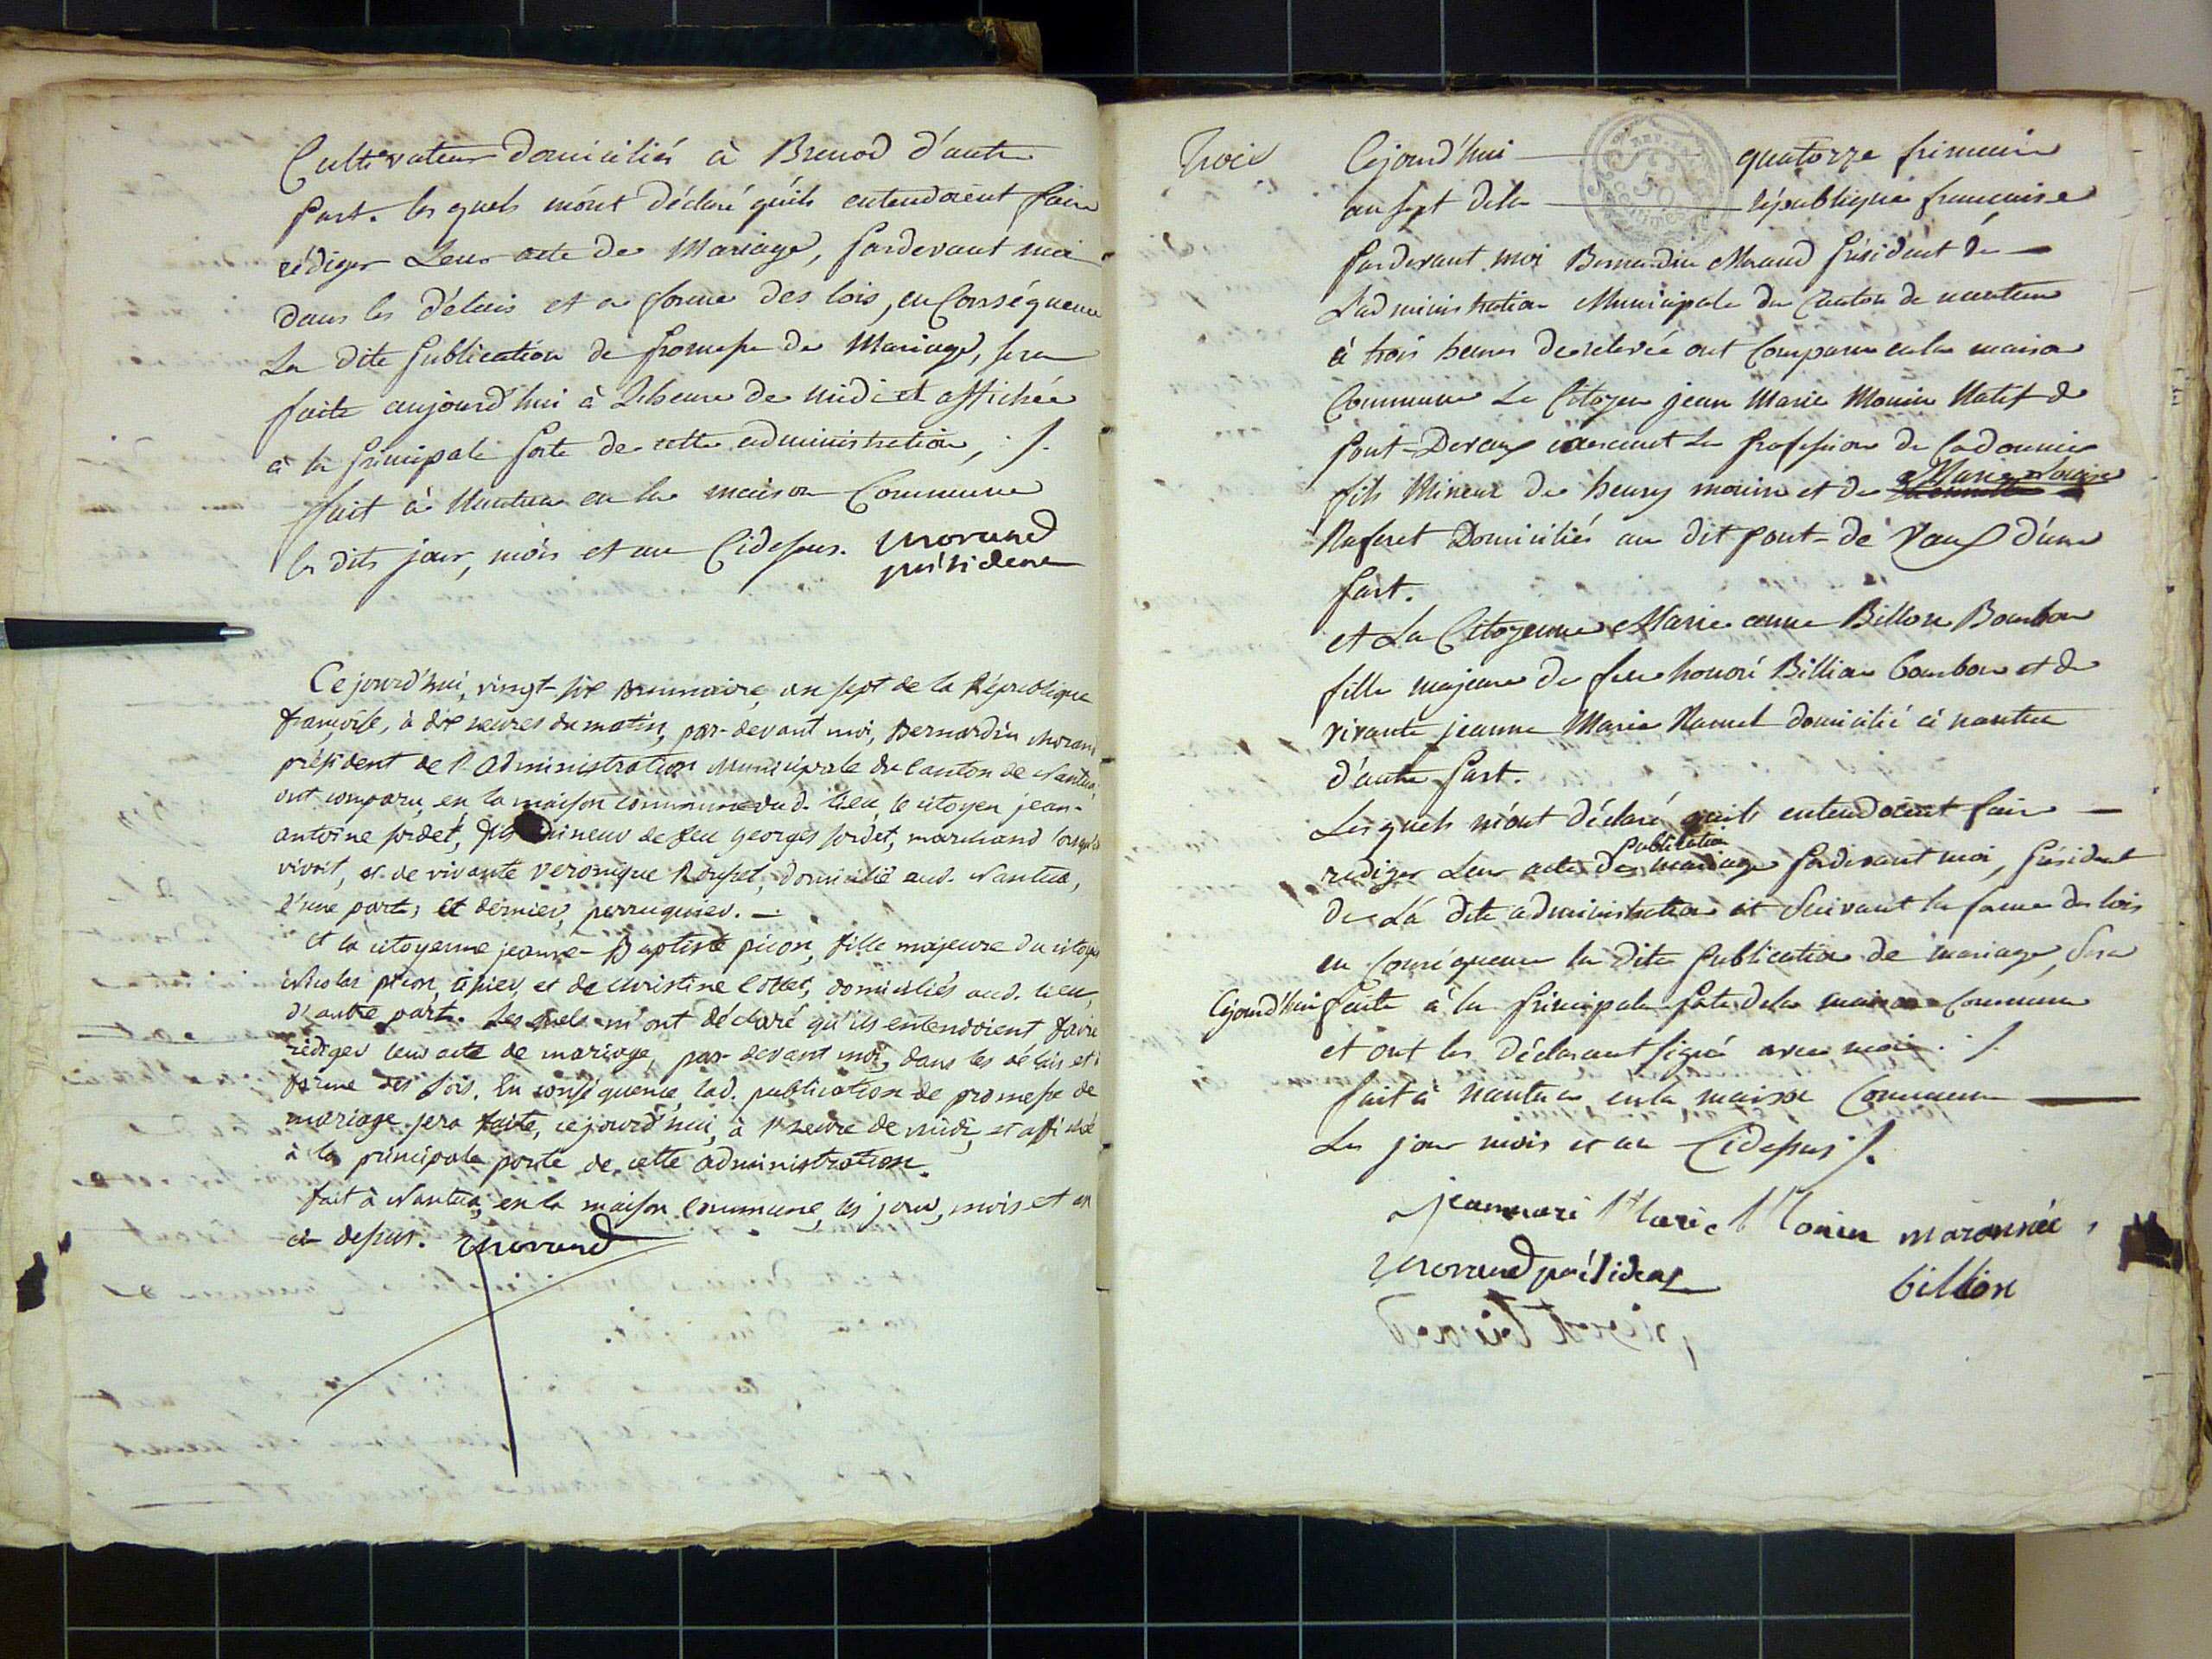 Cultivateur domiciliés à Brenod d'autre
part. les quels m'ont déclaré qu'ils entendoient faire
rédiger Leur acte de Mariage, pardevant moi
dans les délais et a forme des lois, en Conséquence
La dite publication de promesse de Mariage, sera
faite aujourd'hui à l'heure de midi et affichée
à la principale porte de cette administration, ./.
fait à Nantua en la maison Commune
les dits jour, mois et an Cidessus. Morand
président
Ce jourd'hui, vingt-six Brumaire, an sept de la République
françoise, à dix heures du matin, par-devant moi, Bernardin Morand
président de l'Administration Municipale du Canton de Nantua,
ont comparu, en la maison commune dud. lieu, le citoyen jean-
antoine sordet, fils mineur de feu Georges sordet, marchand lorsqu'il
vivoit, et de vivante Veronique Rousset, domicilié aud. Nantua,
d'une part; et dernier, perruquier. —
Et la citoyenne jeanne-Baptiste picon, fille majeure du citoyen
Nicolas picon, et de Christine domiciliés aud. lieu,
d'autre part. Lesquels m'ont déclaré qu'ils entendoient faire
rédiger leur acte de mariage, par-devant moi, dans les délais et
forme des Lois. En conséquence, lad. publication de promesse de
mariage sera faite, cejourd'hui, à l'heure de midi, et affichée
à la principale porte de cette administration.
fait à Nantua, en la maison commune, les jour, mois et an
ci-dessus. Morand
Trois
Cejourd'hui — quatorze frimaire
an sept dela — république française
pardevant moi Bernardin Morand président de —
L'administration Municipale du Canton de nantua
à trois heures de relevée ont Comparu en la maison
Commune Le Citoyen jean Marie Monin Natif de
Pont-Devaux exercent La profession de Cadonnier
fils Mineur de henry monin et de Marie Louise
Domiciliés au dit pont-de Vaux d'une
part.
et La Citoyenne Marie anne Billon Bourbon
fille majeure de feu honoré Billion bourbon et de
vivante jeanne Marie domicilié à nantua
d'autre part.
Lesquels m'ont déclaré quils entendoient faire —
publication
rediger Leur acte de mariage pardevant moi, président
de La dite administration et Suivant la forme des lois
en Conséquence la dite publication de mariage, Sera
Cejourd'hui faite à la principale porte dela maison Commune
et ont les Déclarant signé avec moi ./.
fait à Nantua en la maison Commune —
Les jour mois et an Cidessus ./.
jeanmari Marie Monin mariannée
Morand président billion
REP. FRA.
50
CENTIMES